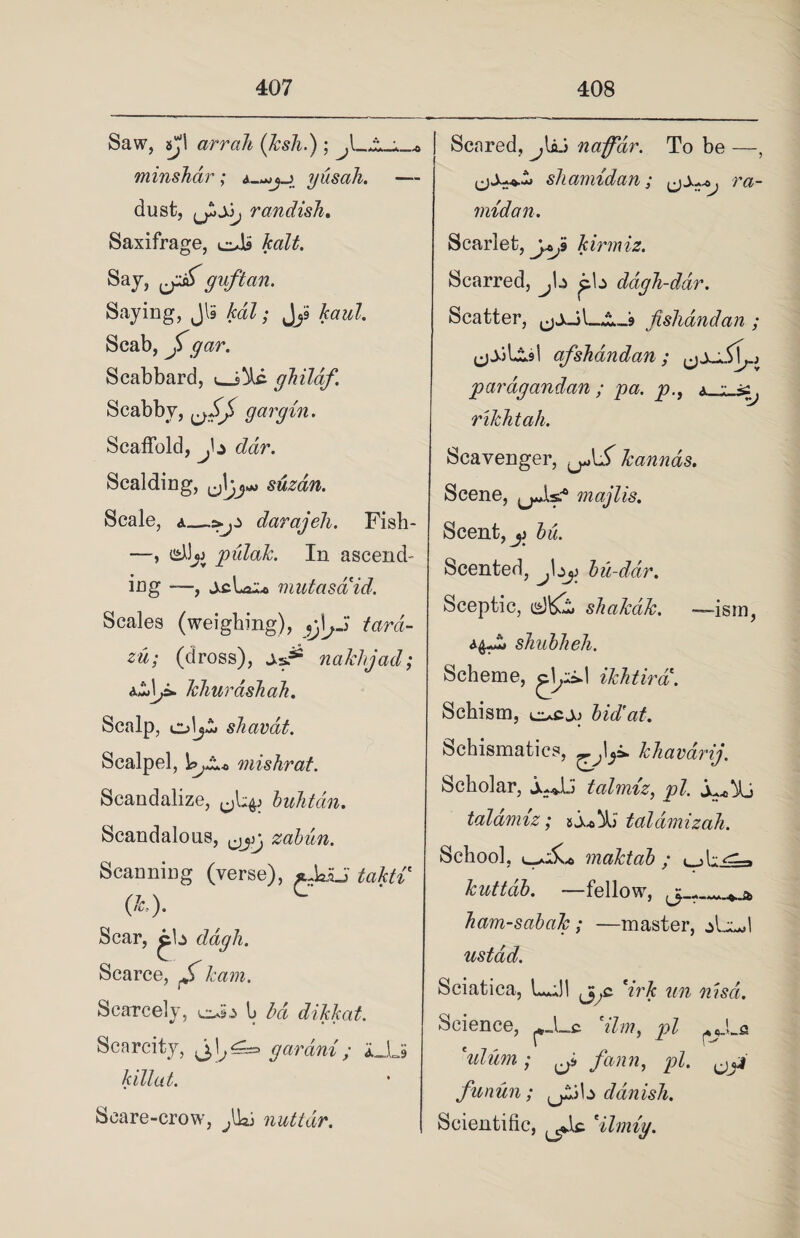 407
408
Saw, اره arrah (ksh.); منشار
minshár; یوسه yúsah. —
dust, رندش randish.
Saxifrage, قلت kalt.
Say, گفتن guftan.
Saying, قال kál; قول kaul.
Scab, گر gar.
Scabbard, غلاف ghiláf.
Scabby, گرگین gargín.
Scaffold, دار dár.
Scalding, سوزان súzán.
Scale, درجه darajeh. Fish-
—, پولك púlak. In ascend-
ing —, متصاعد mutasá'id.
Scales (weighing), ترازو tará-
zú; (dross), نخجد nakhjad;
خراشه khuráshah.
Scalp, شوات shavát.
Scalpel, مشرط mishrat.
Scandalize, بهتان buhtán.
Scandalous, زبون zabún.
Scanning (verse), تقطیع taktí'
(k.).
Scar, داغ dágh.
Scarce, کم kam.
Scarcely, با دقت bá dikkat.
Scarcity, گرانی garání; قلة
killat.
Scare-crow, نطار nuttár.
Scared, نفار naffár. To be —,
شمیدن shamídan; رمیدن ra-
mídan.
Scarlet, قرمز kirmiz.
Scarred, داغ دار dágh-dár.
Scatter, فشاندن fishándan;
افشاندن afshándan; پراگندن
parágandan; pa. p., ریخته
ríkhtah.
Scavenger, کناس kannás.
Scene, مجلس majlis.
Scent, بو bú.
Scented, بودار bú-dár.
Sceptic, شکاك shakák. —ism,
شبهه shubheh.
Scheme, اختراع ikhtirá'.
Schism, بدعت bid'at.
Schismatics, خوارج khavárij.
Scholar, تلمیذ talmíz, pl. تلامیذ
talámíz; تلامذه talámizah.
School, مکتب maktab; کتاب
kuttáb. —fellow, همسبق
ham-sabak; —master, استاد
ustád.
Sciatica, عرق النسا 'irk un nisá.
Science, علم 'ilm, pl علوم
'ulúm; فن fann, pl. فنون
funún; دانش dánish.
Scientific, علمی 'ilmíy.